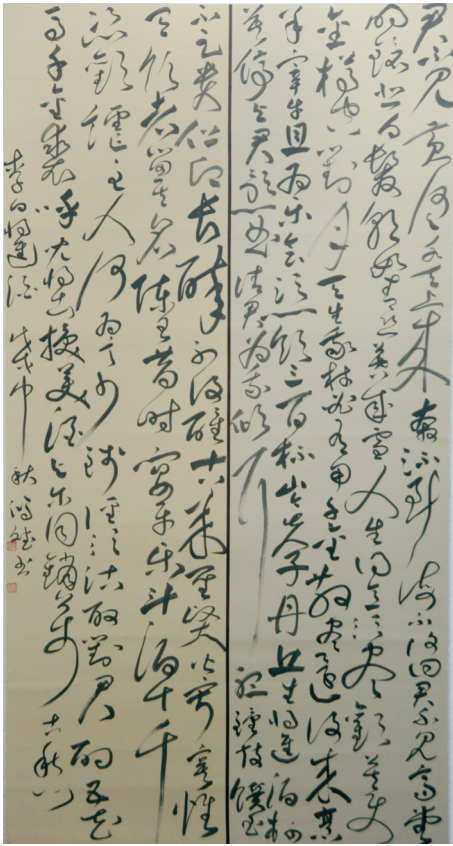 君不見黃河之水天上來奔流到海不復回君不見高堂
明鏡悲白髮朝如青絲暮成雪人生得意須盡歡莫使
金樽空對月天生我材必有用千金散盡還復來烹
羊宰牛且為樂會須一飲三百杯岑夫子丹丘生將進酒杯
莫停與君歌一曲請君為我傾耳聽鐘鼓饌玉
不足貴但願長醉不復醒古來聖賢皆寂寞惟
有飲者留其名陳王昔時宴平樂斗酒十千
恣歡謔主人何為言少錢徑須沽取對君酌五花
馬千金裘呼兒將出換美酒與爾同銷萬古愁
李白將進酒 戊戌中秋 鴻 書